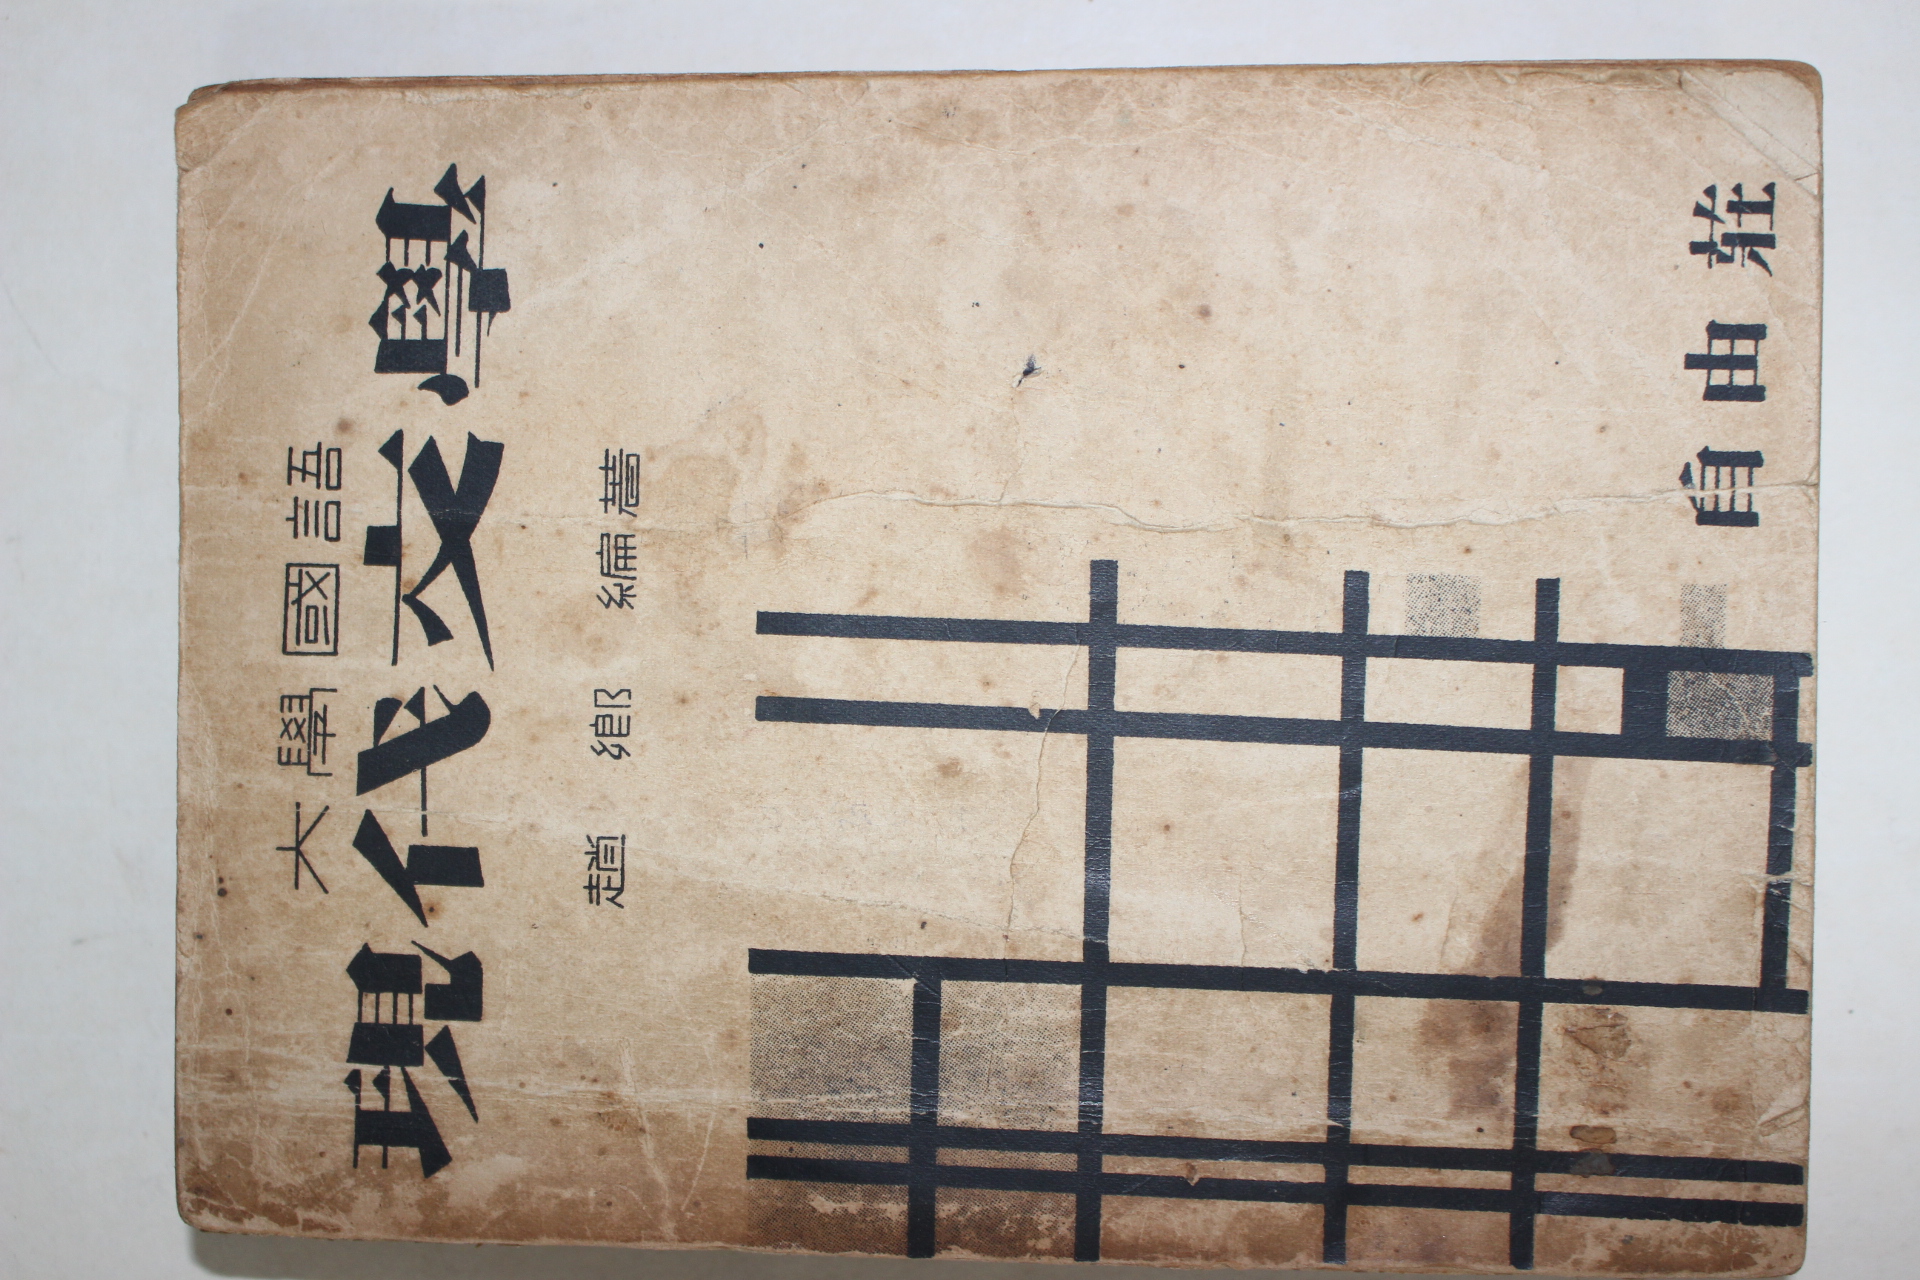 大學國語
現代文學
趙鄕編著
自由莊